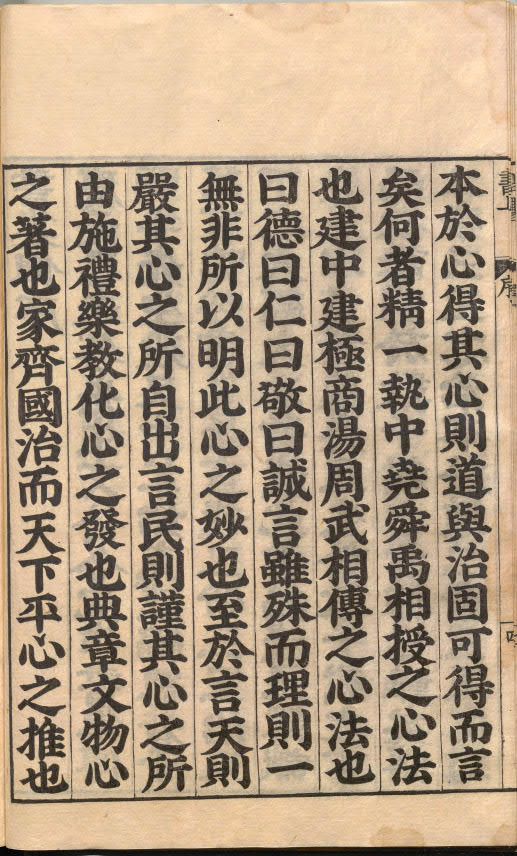 本於心得其心則道與治固可得而言
矣何者精一執中堯舜禹相授之心法
也建中建極商湯周武相傳之心法也
曰德曰仁曰敬曰誠言雖殊而理則一
無非所以明此心之妙也至於言天則
嚴其心之所自出言民則謹其心之所
由施禮樂教化心之發也典章文物心
之著也家齊國治而天下平心之推也